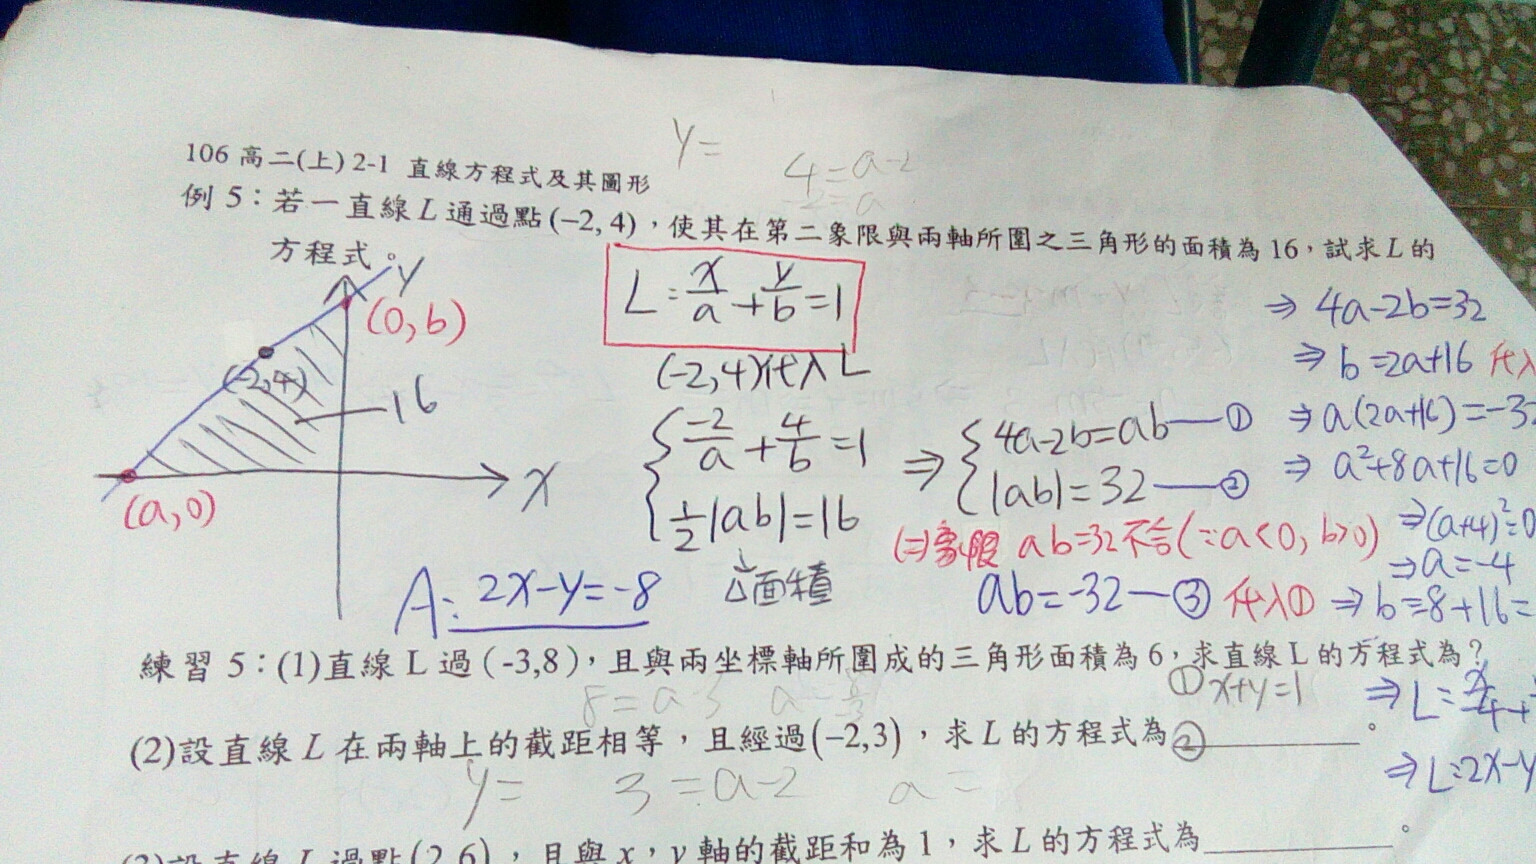 y=
4=a-2
-2=a
106 高二(上) 2-1 直線方程式及其圖形
例 5：若一直線 L 通過點(−2, 4)，使其在第二象限與兩軸所圍之三角形的面積為 16，試求 L 的
方程式。
y
(0,b)
(-2,4)
16
x
(a,0)
L:x/a+y/b=1
(-2,4)代入L
{-2/a+4/b=1
{1/2|ab|=16
↓
△面積
⇒{4a-2b=ab—①
{|ab|=32—②
(二)象限 ab=32不合(∵a<0, b>0)
ab=-32—③ 代入①
⇒ 4a-2b=32
⇒ b=2a+16 代入
⇒ a(2a+16)=-32
⇒ a²+8a+16=0
⇒(a+4)²=0
⇒a=-4
⇒b=-8+16=
⇒L=x/-4+
⇒L:2x-y
A: 2x-y=-8
練習 5：(1)直線 L 過 (-3,8)，且與兩坐標軸所圍成的三角形面積為 6，求直線 L 的方程式為？
8=a
①x+y=1
(2)設直線 L 在兩軸上的截距相等，且經過(−2,3)，求 L 的方程式為②____________。
y= 3=a-2 a=
(3)設直線 L 過點(2,6)，且與 x，y 軸的截距和為 1，求 L 的方程式為____________。